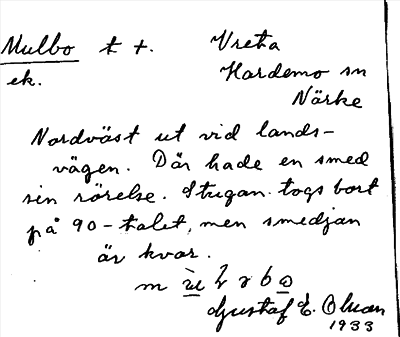 Mulbo t t. Vreta
ek. Hardemo sn
Närke
Nordväst ut vid lands-
vägen. Där hade en smed
sin rörelse. Stugan togs bort
på 90-talet, men smedjan
är kvar.
Gustaf E. Olsson
1933